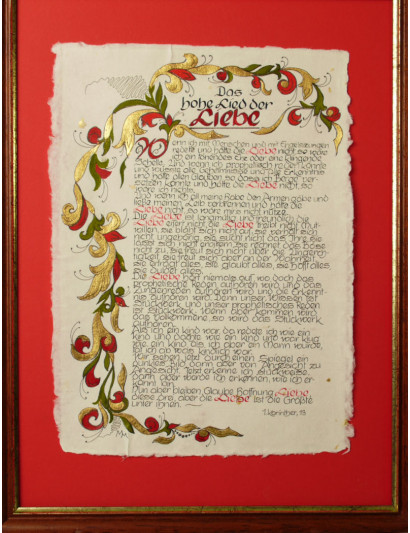 Das
hohe Lied der
Liebe
Wenn ich mit Menschen und mit Engelszungen
redete und hätte die Liebe nicht, so wäre
ich ein tönendes Erz oder eine klingende
Schelle. Und wenn ich prophetisch reden könnte
und wüsste alle Geheimnisse und alle Erkenntnis
und hätte allen Glauben, so dass ich Berge ver-
setzen könnte und hätte die Liebe nicht, so
wäre ich nichts.
Und wenn ich alle meine Habe den Armen gäbe und
ließe meinen Leib verbrennen und hätte die
Liebe nicht, so wäre mirs nicht nütze.
Die Liebe ist langmütig und freundlich, die
Liebe eifert nicht, die Liebe treibt nicht Mut-
willen, sie bläht sich nicht auf, sie verhält sich
nicht ungehörig, sie sucht nicht das Ihre, sie
lässt sich nicht erbittern, sie rechnet das Böse
nicht zu, sie freut sich nicht über die Ungerech-
tigkeit, sie freut sich aber an der Wahrheit,
sie erträgt alles, sie glaubt alles, sie hofft alles,
sie duldet alles.
Die Liebe hört niemals auf, wo doch das
prophetische Reden aufhören wird und das
Zungenreden aufhören wird und die Erkennt-
nis aufhören wird. Denn unser Wissen ist
Stückwerk, und unser prophetisches Reden
ist Stückwerk. Wenn aber kommen wird
das Vollkommene, so wird das Stückwerk
aufhören.
Als ich ein Kind war, da redete ich wie ein
Kind und dachte wie ein Kind und war klug
wie ein Kind; als ich aber ein Mann wurde,
tat ich ab was kindlich war.
Wir sehen jetzt durch einen Spiegel ein
dunkles Bild, dann aber von Angesicht zu
Angesicht. Jetzt erkenne ich stückweise,
dann aber werde ich erkennen, wie ich er-
kannt bin.
Nun aber bleiben Glaube, Hoffnung, Liebe,
diese drei, aber die Liebe ist die Größte
unter ihnen.
1. Korinther, 13